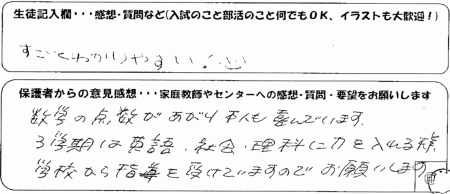 生徒記入欄・・・感想・質問など(入試のこと部活のこと何でもOK、イラストも大歓迎！)
すごくわかりやすい！
保護者からの意見感想・・・家庭教師やセンターへの感想・質問・要望をお願いします
数学の点数があがり本人も喜んでいます。
3学期は英語、社会、理科に力を入れる様
学校から指導を受けていますのでお願いします